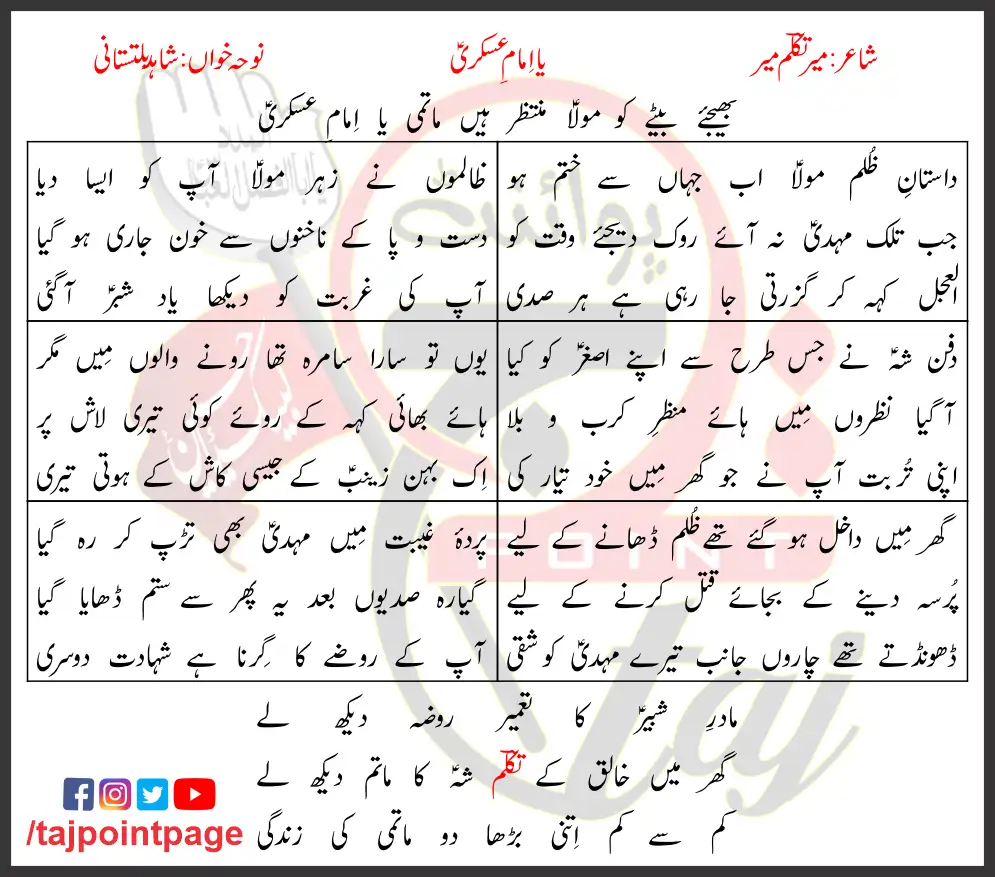 شاعر: میر تکلّم میر
یا اِمامِ عسکریؑ
نوحہ خواں: شاہد بلتستانی
بھیجئے بیٹے کو مولاؑ منتظر ہیں ماتمی یا اِمامِ عسکریؑ
داستانِ ظُلم مولاؑ اب جہاں سے ختم ہو
جب تلک مہدیؑ نہ آئے روک دیجئے وقت کو
العجل کہہ کر گزرتی جا رہی ہے ہر صدی
ظالموں نے زہر مولاؑ آپ کو ایسا دیا
دست و پا کے ناخنوں سے خون جاری ہو گیا
آپ کی غربت کو دیکھا یاد شبرؑ آ گئی
دفن شہؑ نے جس طرح سے اپنے اصغرؑ کو کیا
آ گیا نظروں مِیں ہائے منظرِ کرب و بلا
اپنی تُربت آپ نے جو گھر مِیں خود تیار کی
یوں تو سارا سامرہ تھا رونے والوں مِیں مگر
ہائے بھائی کہہ کے روئے کوئی تیری لاش پر
اِک بہن زینبؑ کے جیسی کاش کے ہوتی تیری
گھر مِیں داخل ہو گئے تھے ظُلم ڈھانے کے لیے
پُرسہ دینے کے بجائے قتل کرنے کے لیے
ڈھونڈتے تھے چاروں جانب تیرے مہدیؑ کو شقی
پردۂ غیبت مِیں مہدیؑ بھی تڑپ کر رہ گیا
گیارہ صدیوں بعد یہ پھر سے ستم ڈھایا گیا
آپ کے روضے کا گِرنا ہے شہادت دوسری
مادرِ شبیرؑ کا تعمیر روضہ دیکھ لے
گھر میں خالق کے تکلّم شہؑ کا ماتم دیکھ لے
کم سے کم اِتنی بڑھا دو ماتمی کی زندگی
/tajpointpage
پوائنٹ
POINT
taj